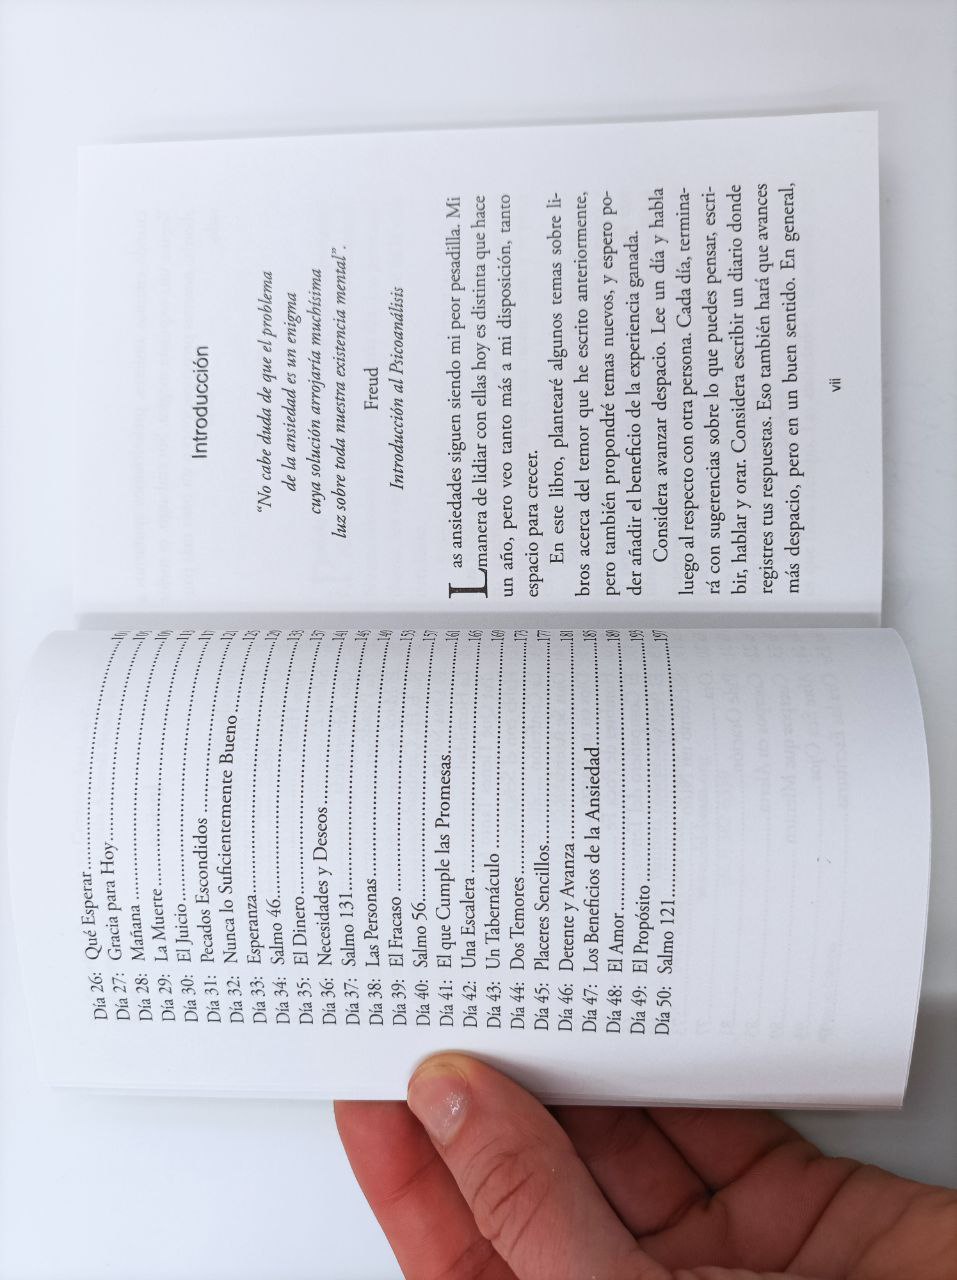 Día 26: Qué Esperar
Día 27: Gracia para Hoy
Día 28: Mañana
Día 29: La Muerte
Día 30: El Juicio
Día 31: Pecados Escondidos
Día 32: Nunca lo Suficientemente Bueno
Día 33: Esperanza
Día 34: Salmo 46
Día 35: El Dinero
Día 36: Necesidades y Deseos
Día 37: Salmo 131
Día 38: Las Personas
Día 39: El Fracaso
Día 40: Salmo 56
Día 41: El que Cumple las Promesas..........161
Día 42: Una Escalera..........165
Día 43: Un Tabernáculo..........169
Día 44: Dos Temores..........173
Día 45: Placeres Sencillos..........177
Día 46: Detente y Avanza..........181
Día 47: Los Beneficios de la Ansiedad..........185
Día 48: El Amor..........189
Día 49: El Propósito..........193
Día 50: Salmo 121..........197
Introducción
“No cabe duda de que el problema
de la ansiedad es un enigma
cuya solución arrojaría muchísima
luz sobre toda nuestra existencia mental”.
Freud
Introducción al Psicoanálisis
Las ansiedades siguen siendo mi peor pesadilla. Mi
manera de lidiar con ellas hoy es distinta que hace
un año, pero veo tanto más a mi disposición, tanto
espacio para crecer.
En este libro, plantearé algunos temas sobre li-
bros acerca del temor que he escrito anteriormente,
pero también propondré temas nuevos, y espero po-
der añadir el beneficio de la experiencia ganada.
Considera avanzar despacio. Lee un día y habla
luego al respecto con otra persona. Cada día, termina-
rá con sugerencias sobre lo que puedes pensar, escri-
bir, hablar y orar. Considera escribir un diario donde
registres tus respuestas. Eso también hará que avances
más despacio, pero en un buen sentido. En general,
vii